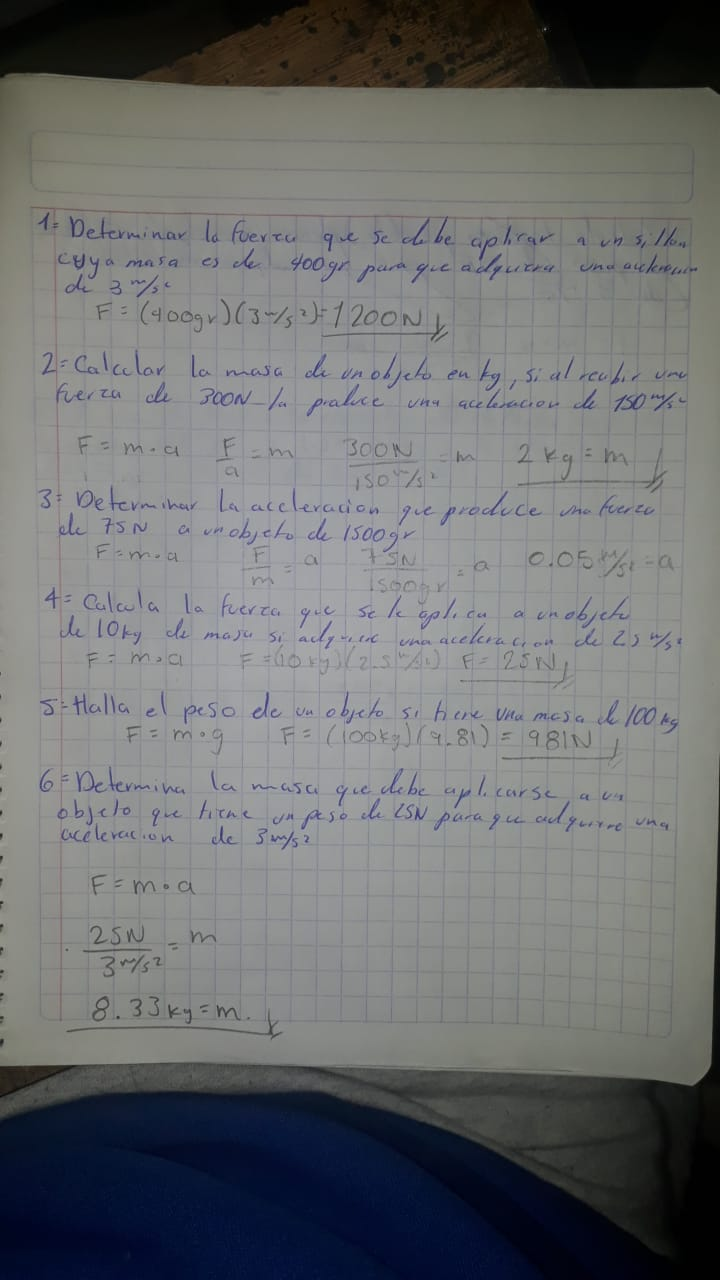 1= Determinar la fuerza que se debe aplicar a un sillon
cuya masa es de 400gr para que adquiera una aceleracion
de 3 m/s²
F = (400gr)(3m/s²)= 1200N
2= Calcular la masa de un objeto en kg, si al recibir una
fuerza de 300N la produce una aceleracion de 150 m/s²
F = m · a F/a = m 300N/150 m/s² = m 2 kg = m
3= Determinar la aceleracion que produce una fuerza
de 75N a un objeto de 1500gr
F = m · a F/m = a 75N/1500gr = a 0.05 m/s² = a
4= Calcula la fuerza que se le aplica a un objeto
de 10kg de masa si adquiere una aceleracion de 2.5 m/s²
F = m · a F = (10 kg)(2.5 m/s²) F = 25N
5= Halla el peso de un objeto si tiene una masa de 100 kg
F = m · g F = (100kg)(9.81) = 981N
6= Determina la masa que debe aplicarse a un
objeto que tiene un peso de 25N para que adquiere una
aceleracion de 3 m/s²
F = m · a
25N/3 m/s² = m
8.33 kg = m.